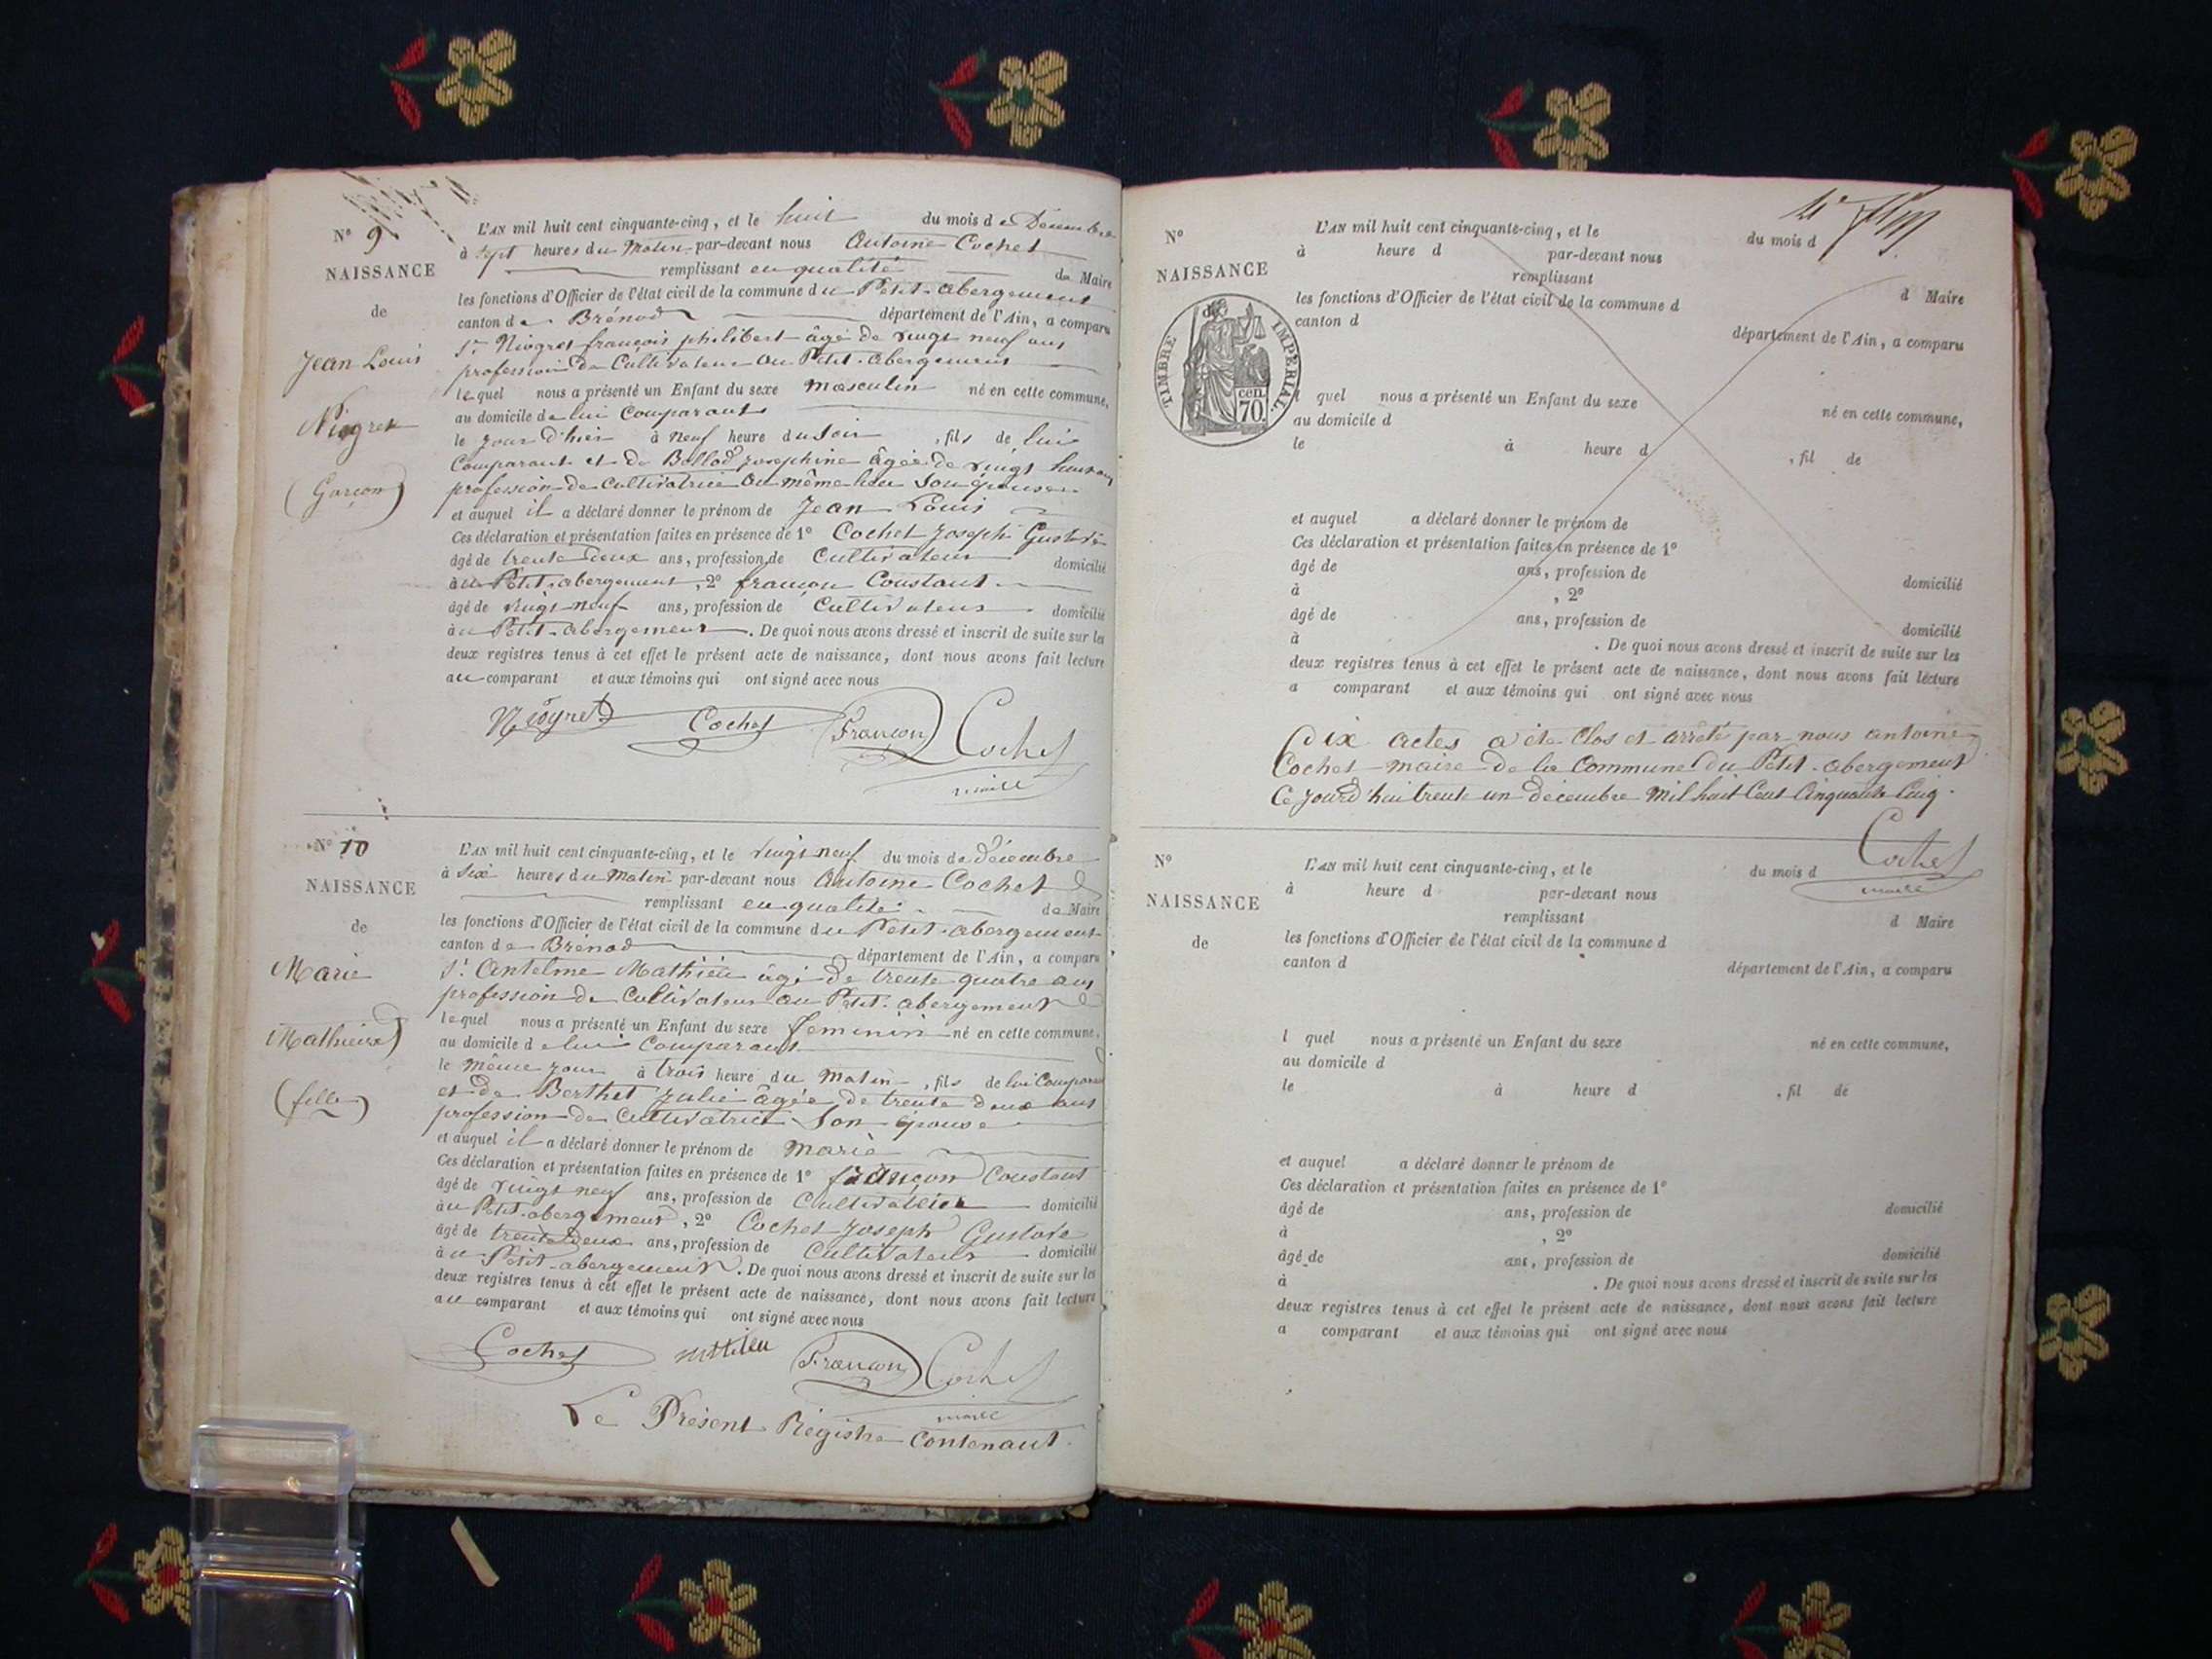 N° 9
NAISSANCE
de
Jean Louis
Niogret
(Garçon)
L'AN mil huit cent cinquante-cinq, et le huit du mois de Décembre
à sept heures du Matin par-devant nous Antoine Cochet
remplissant en qualité de Maire
les fonctions d'Officier de l'état civil de la commune du Petit-abergement
canton de Brénod département de l'Ain, a comparu
Sr. Niogret françois philibert âgé de vingt neuf ans
profession de Cultivateur au Petit-abergement
lequel nous a présenté un Enfant du sexe masculin né en cette commune,
au domicile de lui Comparant
le jour d'hier à neuf heure du Soir, fils de lui
Comparant et de Bollod Josephine âgée de vingt huit ans
profession de cultivatrice au même lieu son épouse
et auquel il a déclaré donner le prénom de Jean Louis
Ces déclaration et présentation faites en présence de 1° Cochet Joseph Gustave
âgé de trente deux ans, profession de Cultivateur domicilié
au Petit-abergement, 2° françon Constant
âgé de vingt-neuf ans, profession de Cultivateur domicilié
au Petit-abergement. De quoi nous avons dressé et inscrit de suite sur les
deux registres tenus à cet effet le présent acte de naissance, dont nous avons fait lecture
au comparant et aux témoins qui ont signé avec nous
Niogret Cochet Françon Cochet
maire
N° 10
NAISSANCE
de
Marie
Mathieu
(fille)
L'AN mil huit cent cinquante-cinq, et le vingt neuf du mois de Décembre
à six heures du Matin par-devant nous Antoine Cochet
remplissant en qualité de Maire
les fonctions d'Officier de l'état civil de la commune du Petit-abergement
canton de Brénod département de l'Ain, a comparu
Sr. Antelme Mathieu âgé de trente quatre ans
profession de Cultivateur au Petit-abergement
lequel nous a présenté un Enfant du sexe feminin né en cette commune,
au domicile de lui Comparant
le même jour à trois heure du matin, fils de lui Comparant
et de Berthet Julie âgée de trente deux ans
profession de Cultivatrice Son épouse
et auquel il a déclaré donner le prénom de marie
Ces déclaration et présentation faites en présence de 1° françon Constant
âgé de vingt neuf ans, profession de Cultivateur domicilié
au Petit-abergement, 2° Cochet Joseph Gustave
âgé de trente deux ans, profession de Cultivateur domicilié
au Petit-abergement. De quoi nous avons dressé et inscrit de suite sur les
deux registres tenus à cet effet le présent acte de naissance, dont nous avons fait lecture
au comparant et aux témoins qui ont signé avec nous
Cochet Françon Cochet
maire
Le Présent Régistre Contenant
N°
NAISSANCE
de
TIMBRE IMPÉRIAL
cen.
70
L'AN mil huit cent cinquante-cinq, et le du mois d
à heure d par-devant nous
remplissant d Maire
les fonctions d'Officier de l'état civil de la commune d
canton d département de l'Ain, a comparu
l quel nous a présenté un Enfant du sexe né en cette commune,
au domicile d
le à heure d , fil de
et auquel a déclaré donner le prénom de
Ces déclaration et présentation faites en présence de 1°
âgé de ans, profession de domicilié
à , 2°
âgé de ans, profession de domicilié
à . De quoi nous avons dressé et inscrit de suite sur les
deux registres tenus à cet effet le présent acte de naissance, dont nous avons fait lecture
a comparant et aux témoins qui ont signé avec nous
Dix actes a été Clos et arrêté par nous antoine
Cochet maire de la Commune du Petit-abergement
Ce jourd'hui trente un decembre Mil huit Cent Cinquante Cinq.
Cochet
maire
N°
NAISSANCE
de
L'AN mil huit cent cinquante-cinq, et le du mois d
à heure d par-devant nous
remplissant d Maire
les fonctions d'Officier de l'état civil de la commune d
canton d département de l'Ain, a comparu
l quel nous a présenté un Enfant du sexe né en cette commune,
au domicile d
le à heure d , fil de
et auquel a déclaré donner le prénom de
Ces déclaration et présentation faites en présence de 1°
âgé de ans, profession de domicilié
à , 2°
âgé de ans, profession de domicilié
à . De quoi nous avons dressé et inscrit de suite sur les
deux registres tenus à cet effet le présent acte de naissance, dont nous avons fait lecture
a comparant et aux témoins qui ont signé avec nous